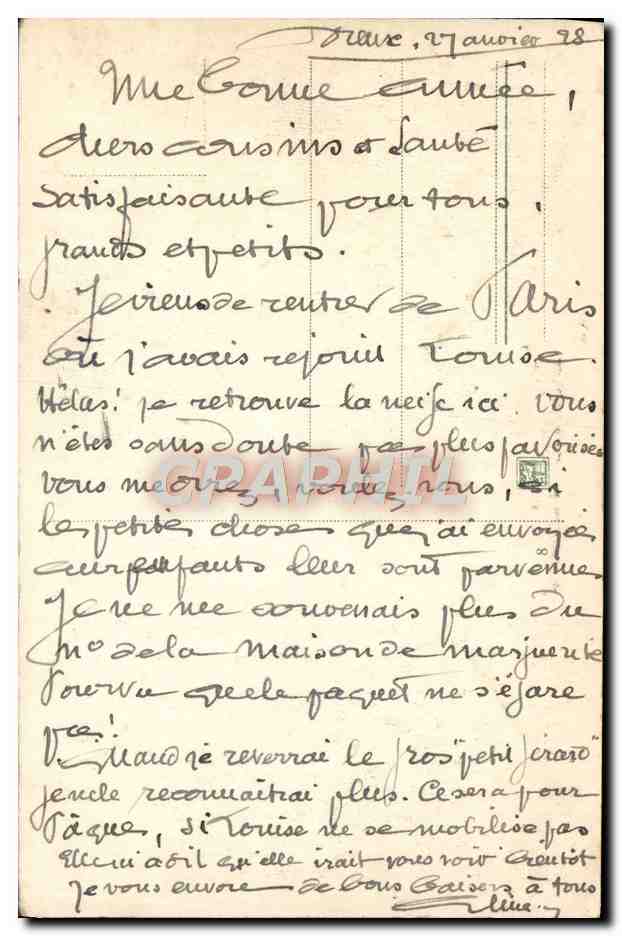 Dreux, 27 janvier 28
Une bonne année,
chers cousins et Santé
Satisfaisante pour tous,
grands et petits.
Je viens de rentrer de Paris
où j'avais rejoint Louise.
Hélas! je retrouve la neige ici. Vous
n'êtes sans doute pas plus favorisés
vous m'écrirez, voulez vous, si
les petites choses que j'ai envoyées
aux enfants leur sont parvenues
Je ne me souvenais plus du
no de la maison de marguerite
Pourvu que le paquet ne s'égare
pas!
Quand je reverrai le gros "petit Girard"
je ne le reconnaîtrai plus. Ce sera pour
Pâques, si Louise ne se mobilise pas
Elle m'a dit qu'elle irait vous voir bientôt
Je vous envoie de bons baisers à tous
CPAPHIL